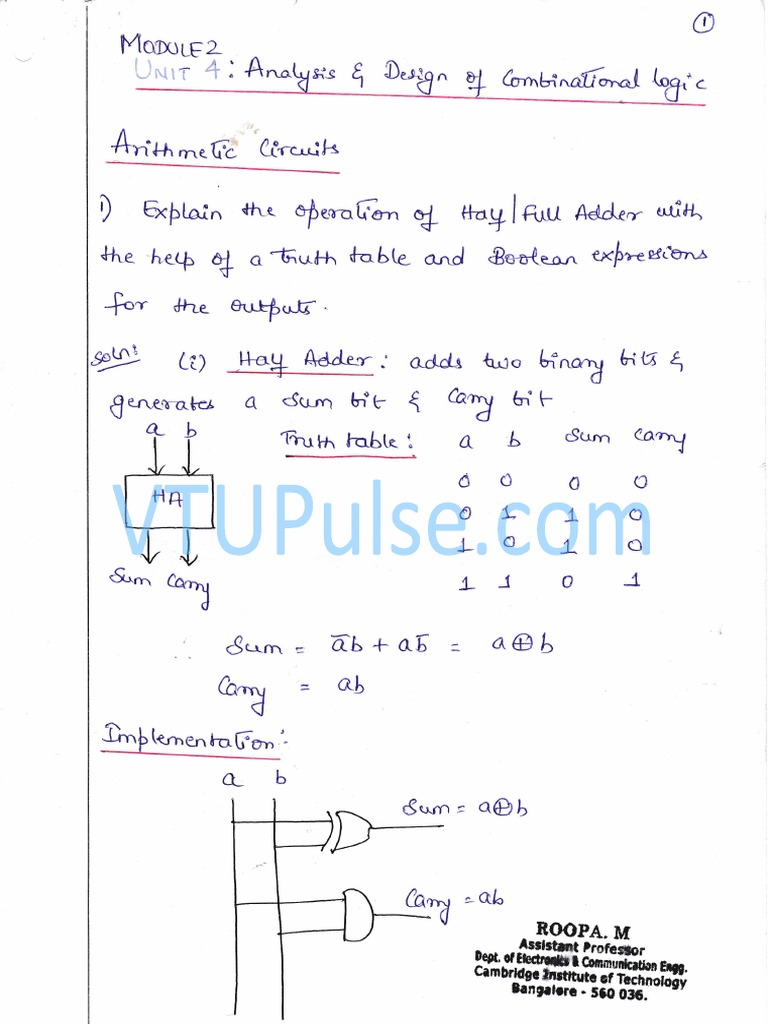 1
MODULE 2
UNIT 4 : Analysis & Design of Combinational logic
Arithmetic Circuits
1) Explain the operation of Half/Full Adder with
the help of a truth table and Boolean expressions
for the outputs.
Soln: (i) Half Adder : adds two binary bits &
generates a Sum bit & Carry bit
a b
Truth table : a b Sum Carry
0 0 0 0
HA
0 1 1 0
1 0 1 0
Sum Carry
1 1 0 1
VTUPulse.com
∴ Sum = a̅b + ab̅ = a⊕b
Carry = ab
Implementation:-
a b
Sum = a⊕b
Carry = ab
ROOPA. M
Assistant Professor
Dept. of Electronics & Communication Engg.
Cambridge Institute of Technology
Bangalore - 560 036.